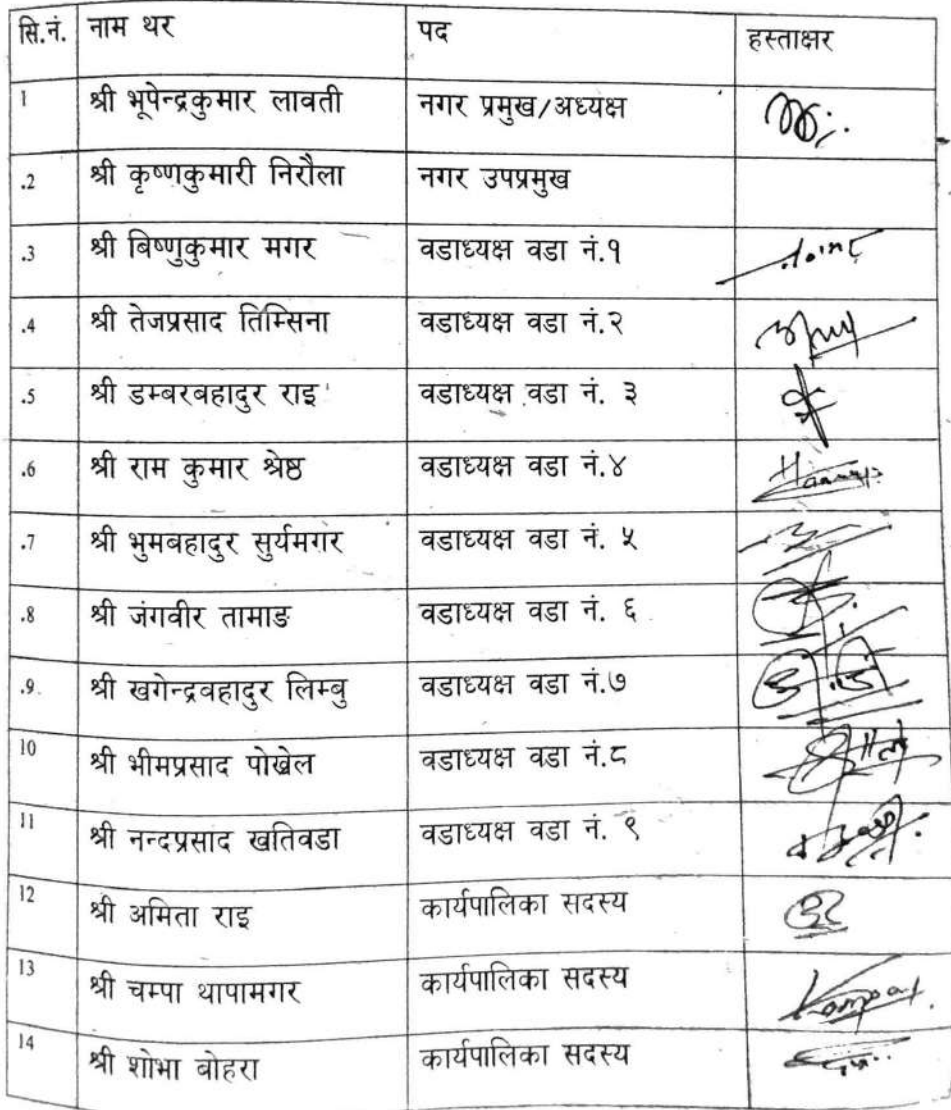 सि.नं. नाम थर पद हस्ताक्षर
1 श्री भूपेन्द्रकुमार लावती नगर प्रमुख/अध्यक्ष
.2 श्री कृष्णकुमारी निरौला नगर उपप्रमुख
.3 श्री बिष्णुकुमार मगर वडाध्यक्ष वडा नं.१
.4 श्री तेजप्रसाद तिम्सिना वडाध्यक्ष वडा नं.२
.5 श्री डम्बरबहादुर राइ वडाध्यक्ष वडा नं. ३
.6 श्री राम कुमार श्रेष्ठ वडाध्यक्ष वडा नं.४
.7 श्री भुमबहादुर सुर्यमगर वडाध्यक्ष वडा नं. ५
.8 श्री जंगवीर तामाङ वडाध्यक्ष वडा नं. ६
.9. श्री खगेन्द्रवहादुर लिम्बु वडाध्यक्ष वडा नं.७
10 श्री भीमप्रसाद पोखेल वडाध्यक्ष वडा नं.८
11 श्री नन्दप्रसाद खतिवडा वडाध्यक्ष वडा नं. ९
12 श्री अमिता राइ कार्यपालिका सदस्य
13 श्री चम्पा थापामगर कार्यपालिका सदस्य
14 श्री शोभा बोहरा कार्यपालिका सदस्य